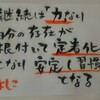 継続は「力なり
自分の存在が
根付いて定着化
なり安定し習慣
となる